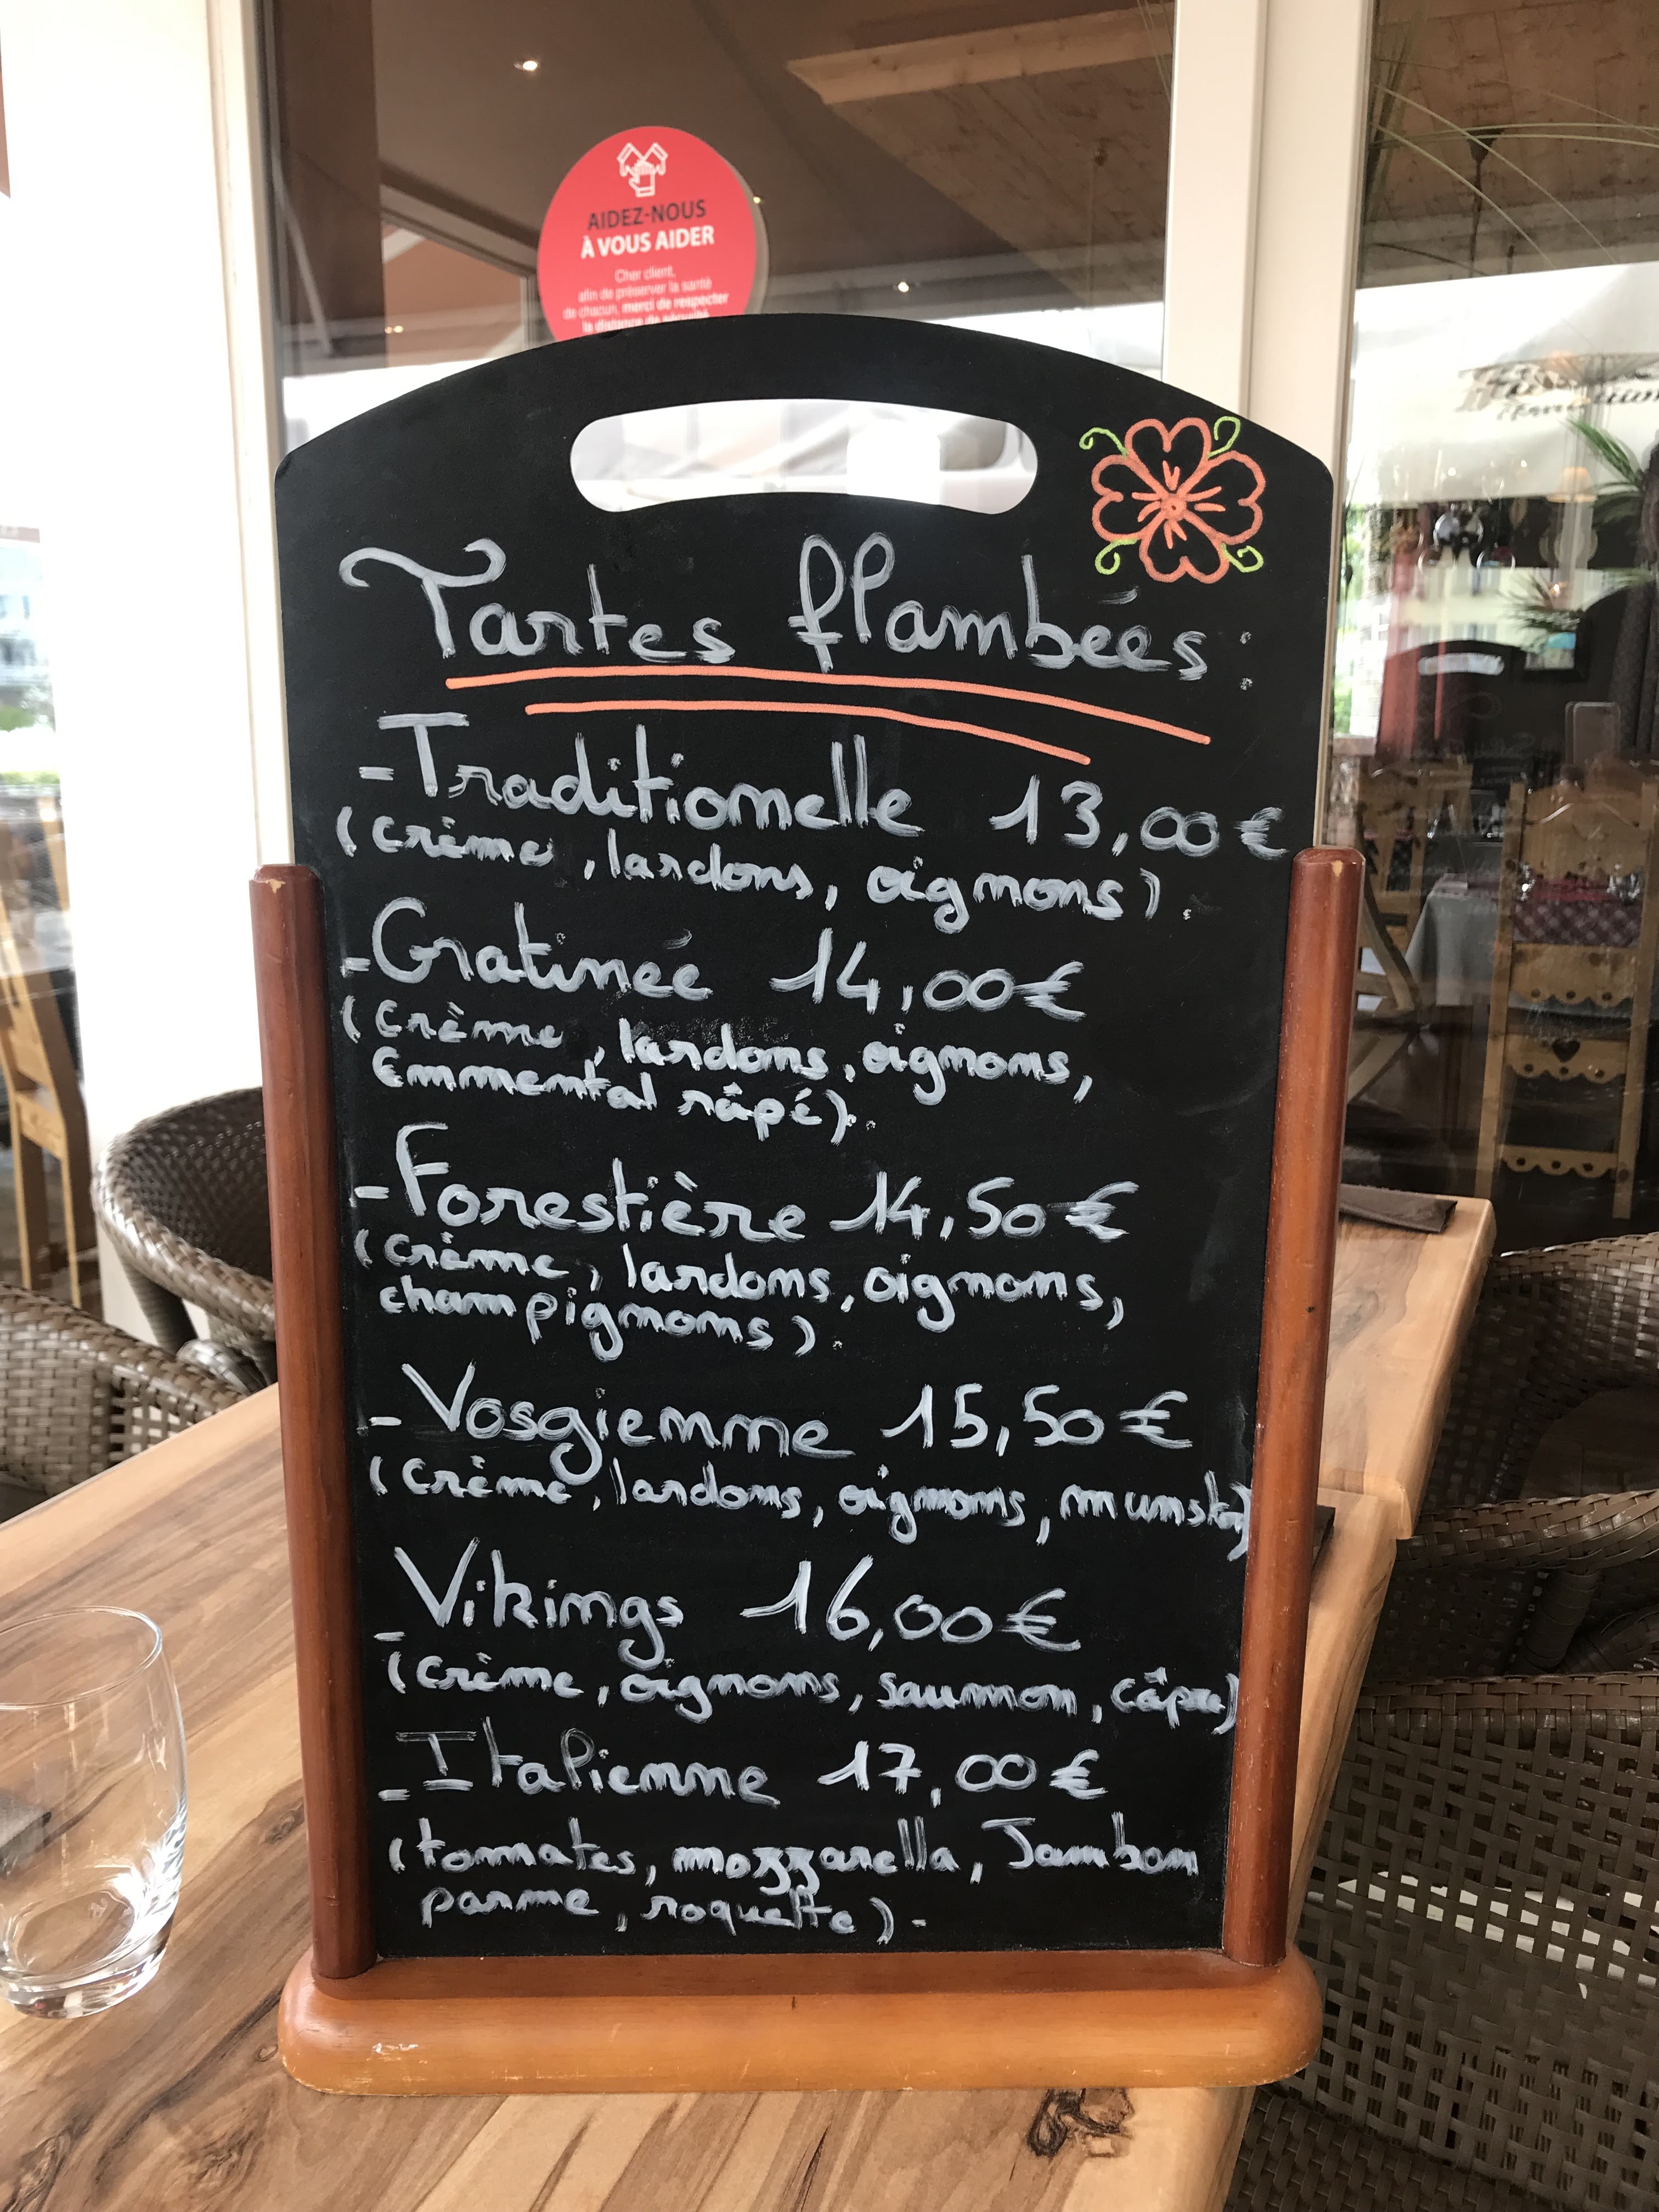 AIDEZ-NOUS
À VOUS AIDER
Cher client,
afin de préserver la santé
de chacun, merci de respecter
la distance de sécurité
Tartes flambées :
- Traditionnelle 13,00 €
(crème, lardons, oignons).
- Gratinée 14,00 €
(crème, lardons, oignons,
Emmental râpé).
- Forestière 14,50 €
(crème, lardons, oignons,
champignons).
- Vosgienne 15,50 €
(crème, lardons, oignons, munster)
- Vikings 16,00 €
(crème, oignons, saumon, câpre)
- Italienne 17,00 €
(tomates, mozzarella, Jambon
parme, roquette).-